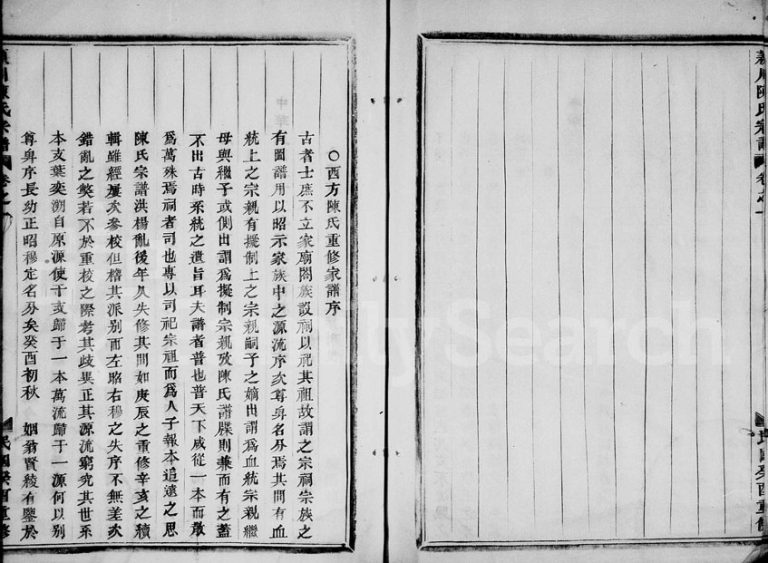 義川陳氏宗譜 卷之一
民國癸酉重修
○西方陳氏重修家譜序
古者士庶不立家廟閤族設祠以祀其祖故謂之宗祠宗族之
有圖譜用以昭示家族中之源流序次尊卑名分焉其間有血
統上之宗親有擬制上之宗親嗣子之嫡出謂爲血統宗親繼
母與繼子或側出謂爲擬制宗親攷陳氏譜牒則兼而有之蓋
不出古時系統之遺旨耳夫譜者普也普天下咸從一本而散
爲萬殊焉祠者司也專以司祀宗祖而爲人子報本追遠之思
陳氏宗譜洪楊亂後年久失修其間如庚辰之重修辛亥之續
輯雖經屢次參校但稽其派別而左昭右穆之失序不無差次
錯亂之獘若不於重校之際考其歧異正其源流窮究其世系
本支葉奕溯自原源使千支歸于一本萬流歸于一源何以別
尊卑序長幼正昭穆定名分矣癸酉初秋 姻翁賢稜有鑒於
川陳氏宗譜 卷之一
民國癸酉重修
lySearch